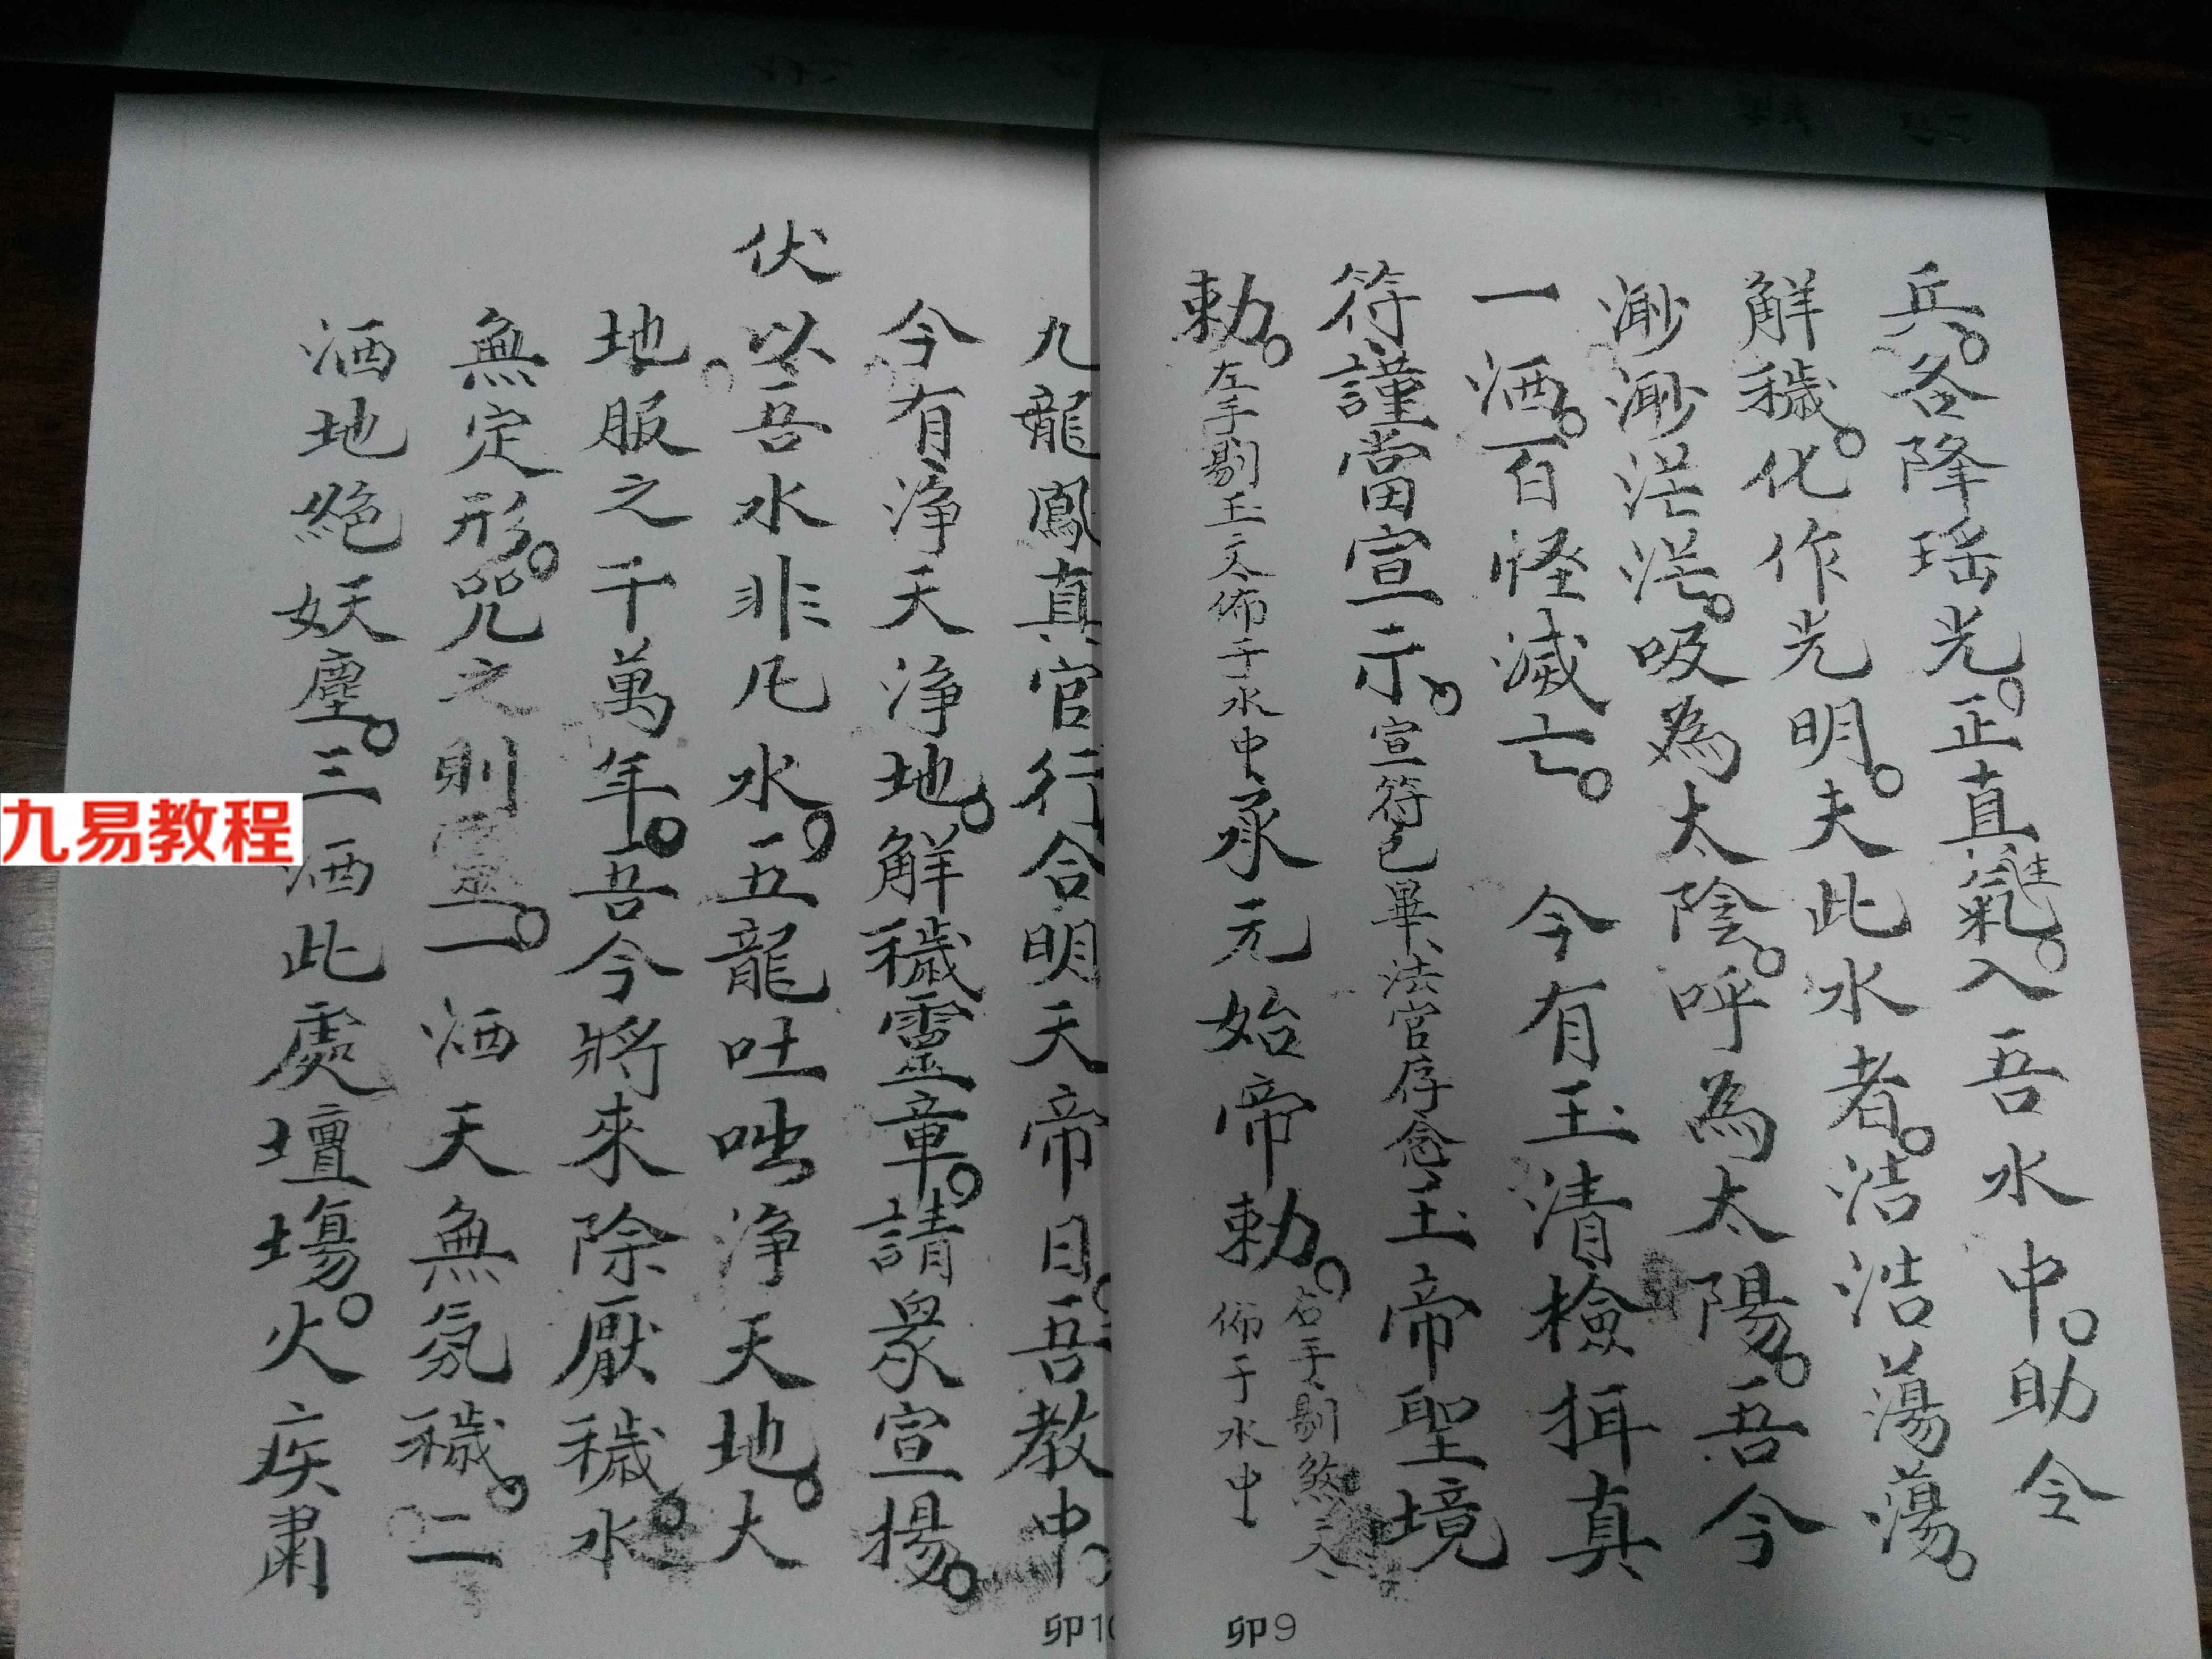 兵。各降瑶光。正真氣。注入吾水中。助令
解穢。化作光明。夫此水者。洁浩蕩蕩。
渺渺茫茫。吸為太陰。呼為太陽。吾今
一洒。百怪滅亡。今有玉清檢揖真
符謹當宣示。宣符已畢、法官存念玉帝聖境
勅。左手剔玉文佈于水中承元始帝勅。右手剔煞文佈于水中
卯9
九龍鳳真官行合明天帝日。吾教中。
今有淨天淨地。解穢靈章。請眾宣揚。
伏以吾水非凡水。五龍吐咄淨天地。大
地服之千萬年。吾今將來除厭穢水。
無定形。咒之則靈。一洒天無氛穢。二
洒地絕妖塵。三洒此處壇場。火疾肅
卯10
九易教程